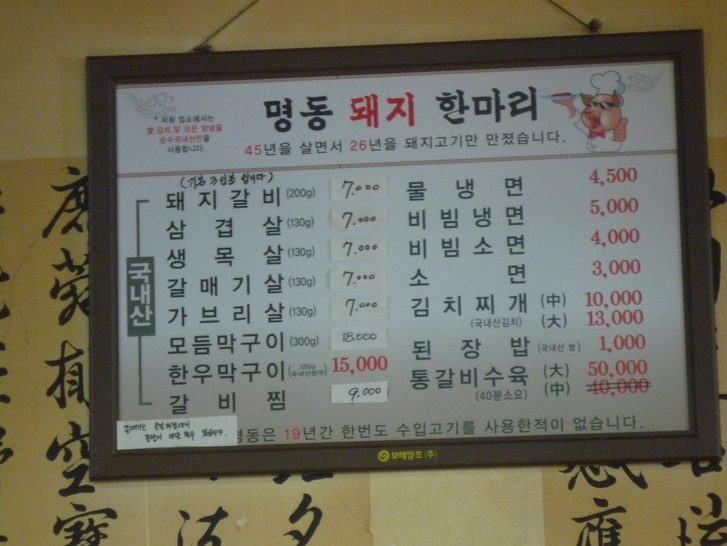 명동 돼지 한마리
* 저희 업소에서는
쌀,김치,및 모든 양념을
순수국내산만을
사용합니다.
45년을 살면서 26년을 돼지고기만 만졌습니다.
(기본 3인분 입니다)
국내산
돼지갈비(200g) 7.000
삼겹살(130g) 7.000
생목살(130g) 7.000
갈매기살(130g) 7.000
가브리살(130g) 7.000
모듬막구이(300g) 18.000
한우막구이(120g 국내산한우) 15,000
갈비찜 9,000
물냉면 4,500
비빔냉면 5,000
비빔소면 4,000
소면 3,000
김치찌개 (中) 10,000
(국내산김치) (大) 13,000
된장밥(국내산 쌀) 1,000
통갈비수육 (大) 50,000
(40분소요) (中) 40,000
명동은 19년간 한번도 수입고기를 사용한적이 없습니다.
보해양조(주)